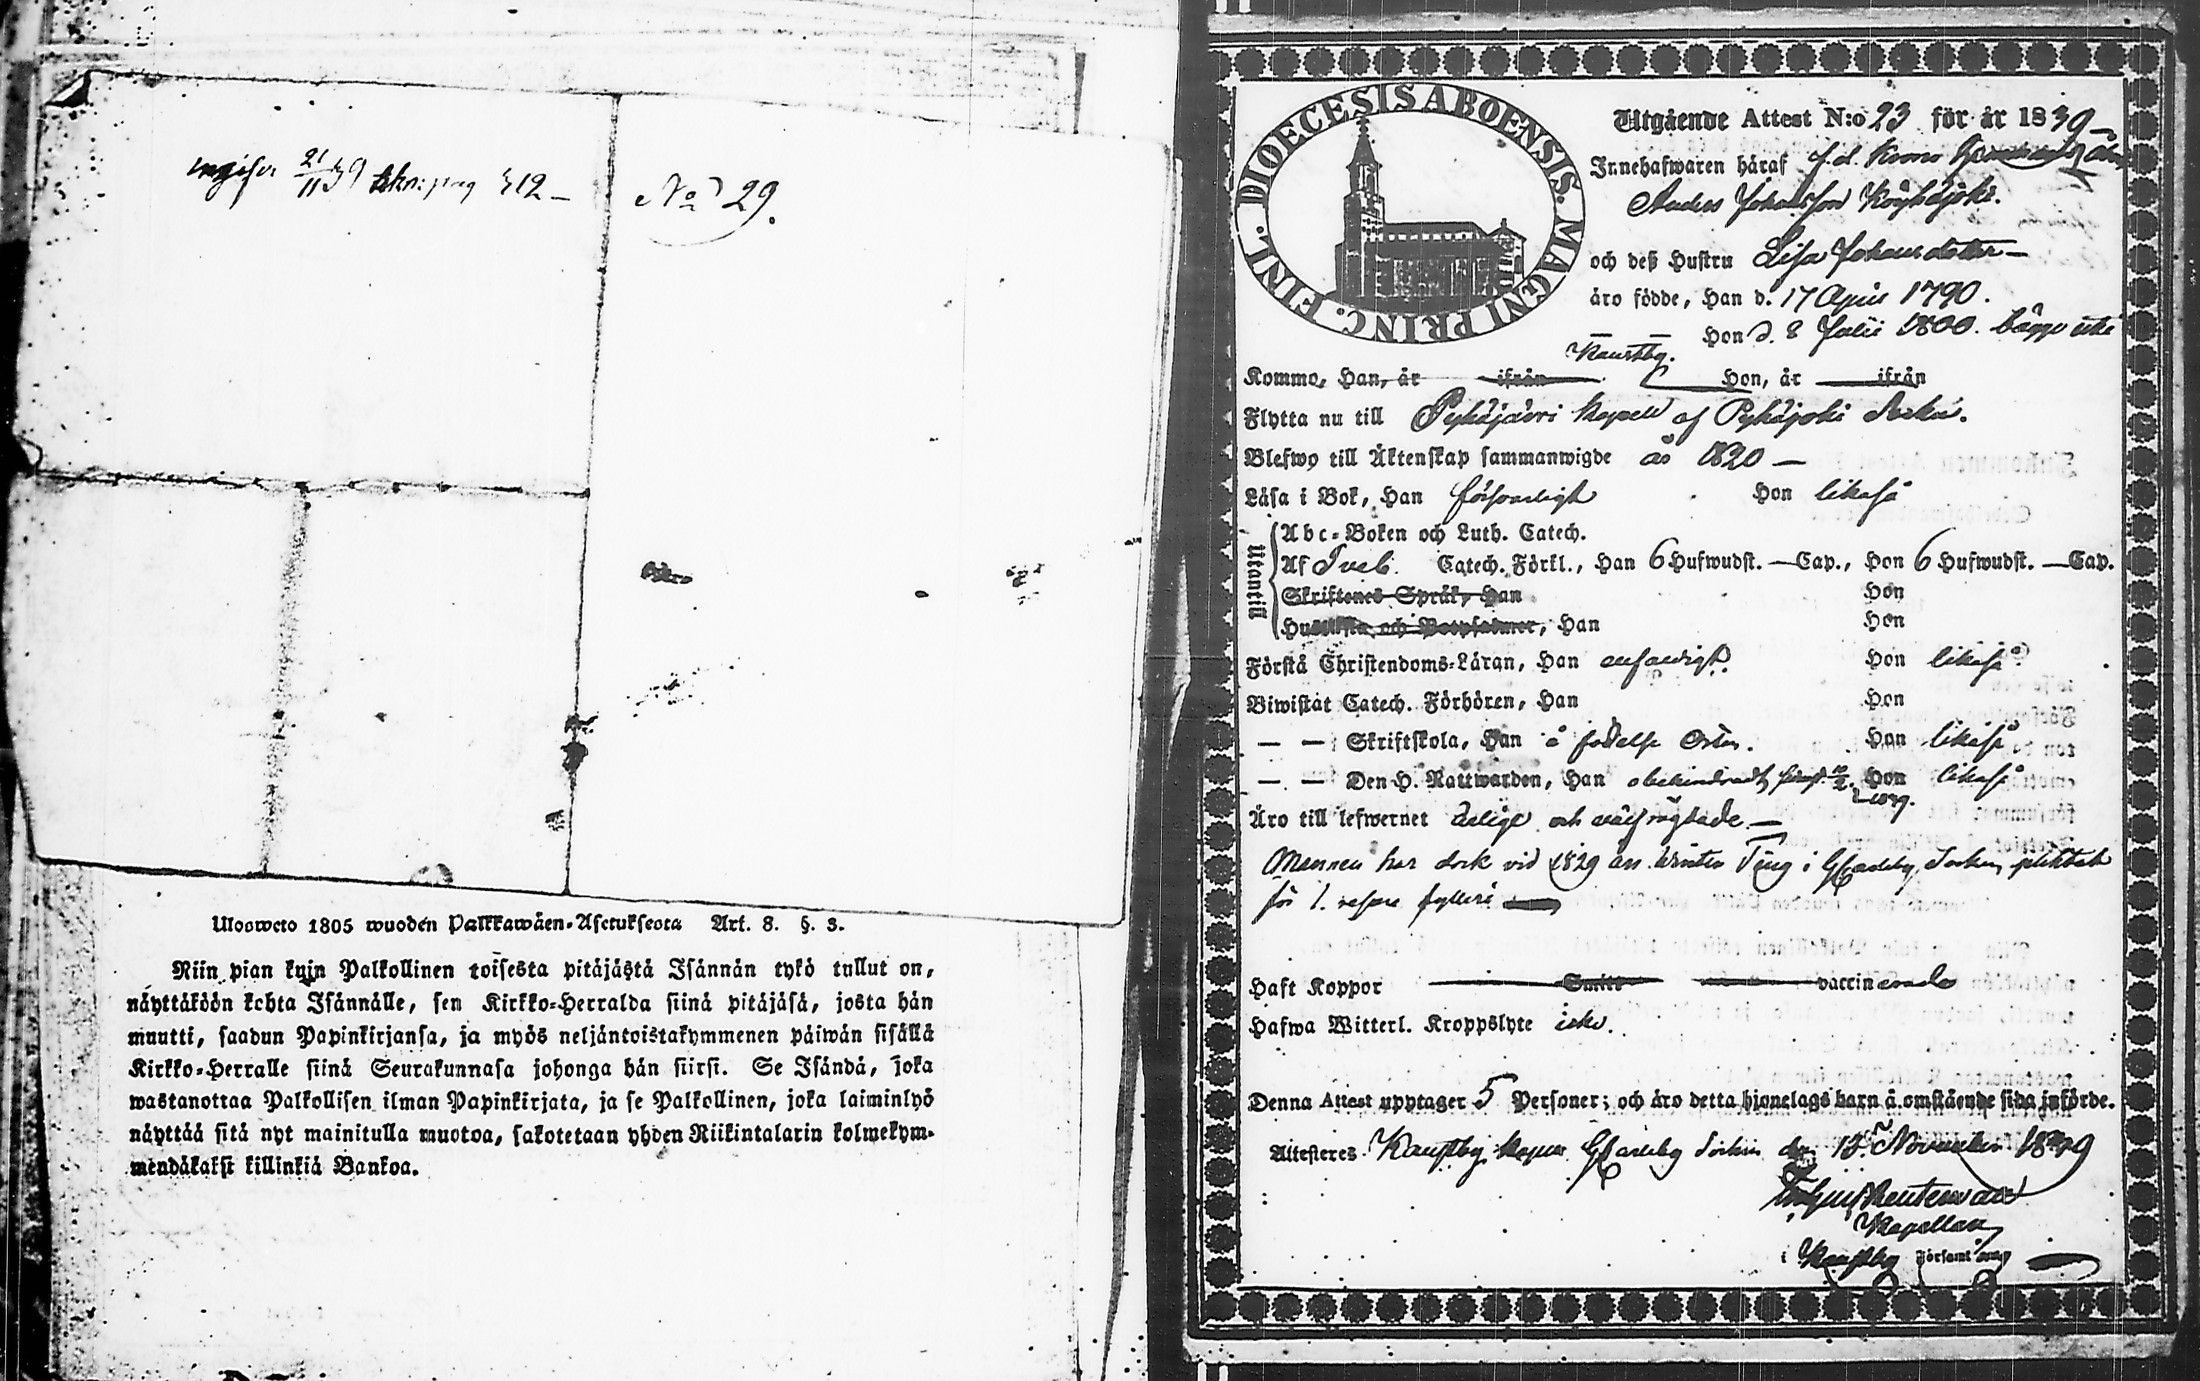 21/11 39 pag 312 –
No 29.
Ulosweto 1805 wuoden Palkkawäen-Asetuksesta Art. 8. §. 3.
Niin pian kuin Palkollinen toisesta pitäjästä Isännän tykö tullut on,
näyttäköön kohta Isännälle, sen Kirkko-Herralda siinä pitäjäsä, josta hän
muutti, saadun Papinkirjansa, ja myös neljäntoistakymmenen päiwän sisällä
Kirkko-Herralle siinä Seurakunnasa johonga hän siirsi. Se Isändä, joka
wastanottaa Palkollisen ilman Papinkirjata, ja se Palkollinen, joka laiminlyö
näyttää sitä nyt mainitulla muotoa, sakotetaan yhden Riikintalarin kolmekym-
mendäkaksi killinkiä Bankoa.
DIOECESIS ABOENSIS. MAGNI PRINC. FINL.
Utgående Attest N:o 23 för år 1839 –
Innehafwaren häraf f. d. Krono
Anders Johansson Köyhäjoki.
och deß Hustru Lisa Johansdotter –
äro födde, Han d. 17 April 1790.
Hon d. 8 Julii 1800. bägge uti
Kaustby.
Komme, Han, år ifrån Hon, år ifrån
Flytta nu till Pyhäjärvi Kapell af Pyhäjoki Socken.
Blefwo till Äktenskap sammanwigde år 1820 –
Läsa i Bok, Han försvarligt Hon likaså
Utantill
Abc-Boken och Luth. Catech.
Af Sveb. Catech. Förkl., Han 6 Hufwudst. — Cap., Hon 6 Hufwudst. — Cap.
Skriftenes Språk, Han Hon
Hustafla och Botpsalmer, Han Hon
Förstå Christendoms-Läran, Han enfaldigt. Hon likaså
Biwistat Catech. Förhören, Han Hon
— — Skriftskola, Han å födelse Orten. Hon likaså
— — Den H. Nattwarden, Han obehindradt, Hon likaså
1839.
Äro till lefwernet ärlige och välfrägdade. —
Mannen har dock vid 1829 års Winter Ting i Gamleby Socken, pliktat
för 1. resan fylleri
Haft Koppor Smitt vaccinerade
Hafwa Witterl. Kroppslyte icke.
Denna Attest upptager 5 Personer; och äro detta hjonelags barn å omstående sida införde.
Attesteres Kaustby Kapell Gamleby Socken den 15 November 1839
Kapellan
i Kaustby Församling